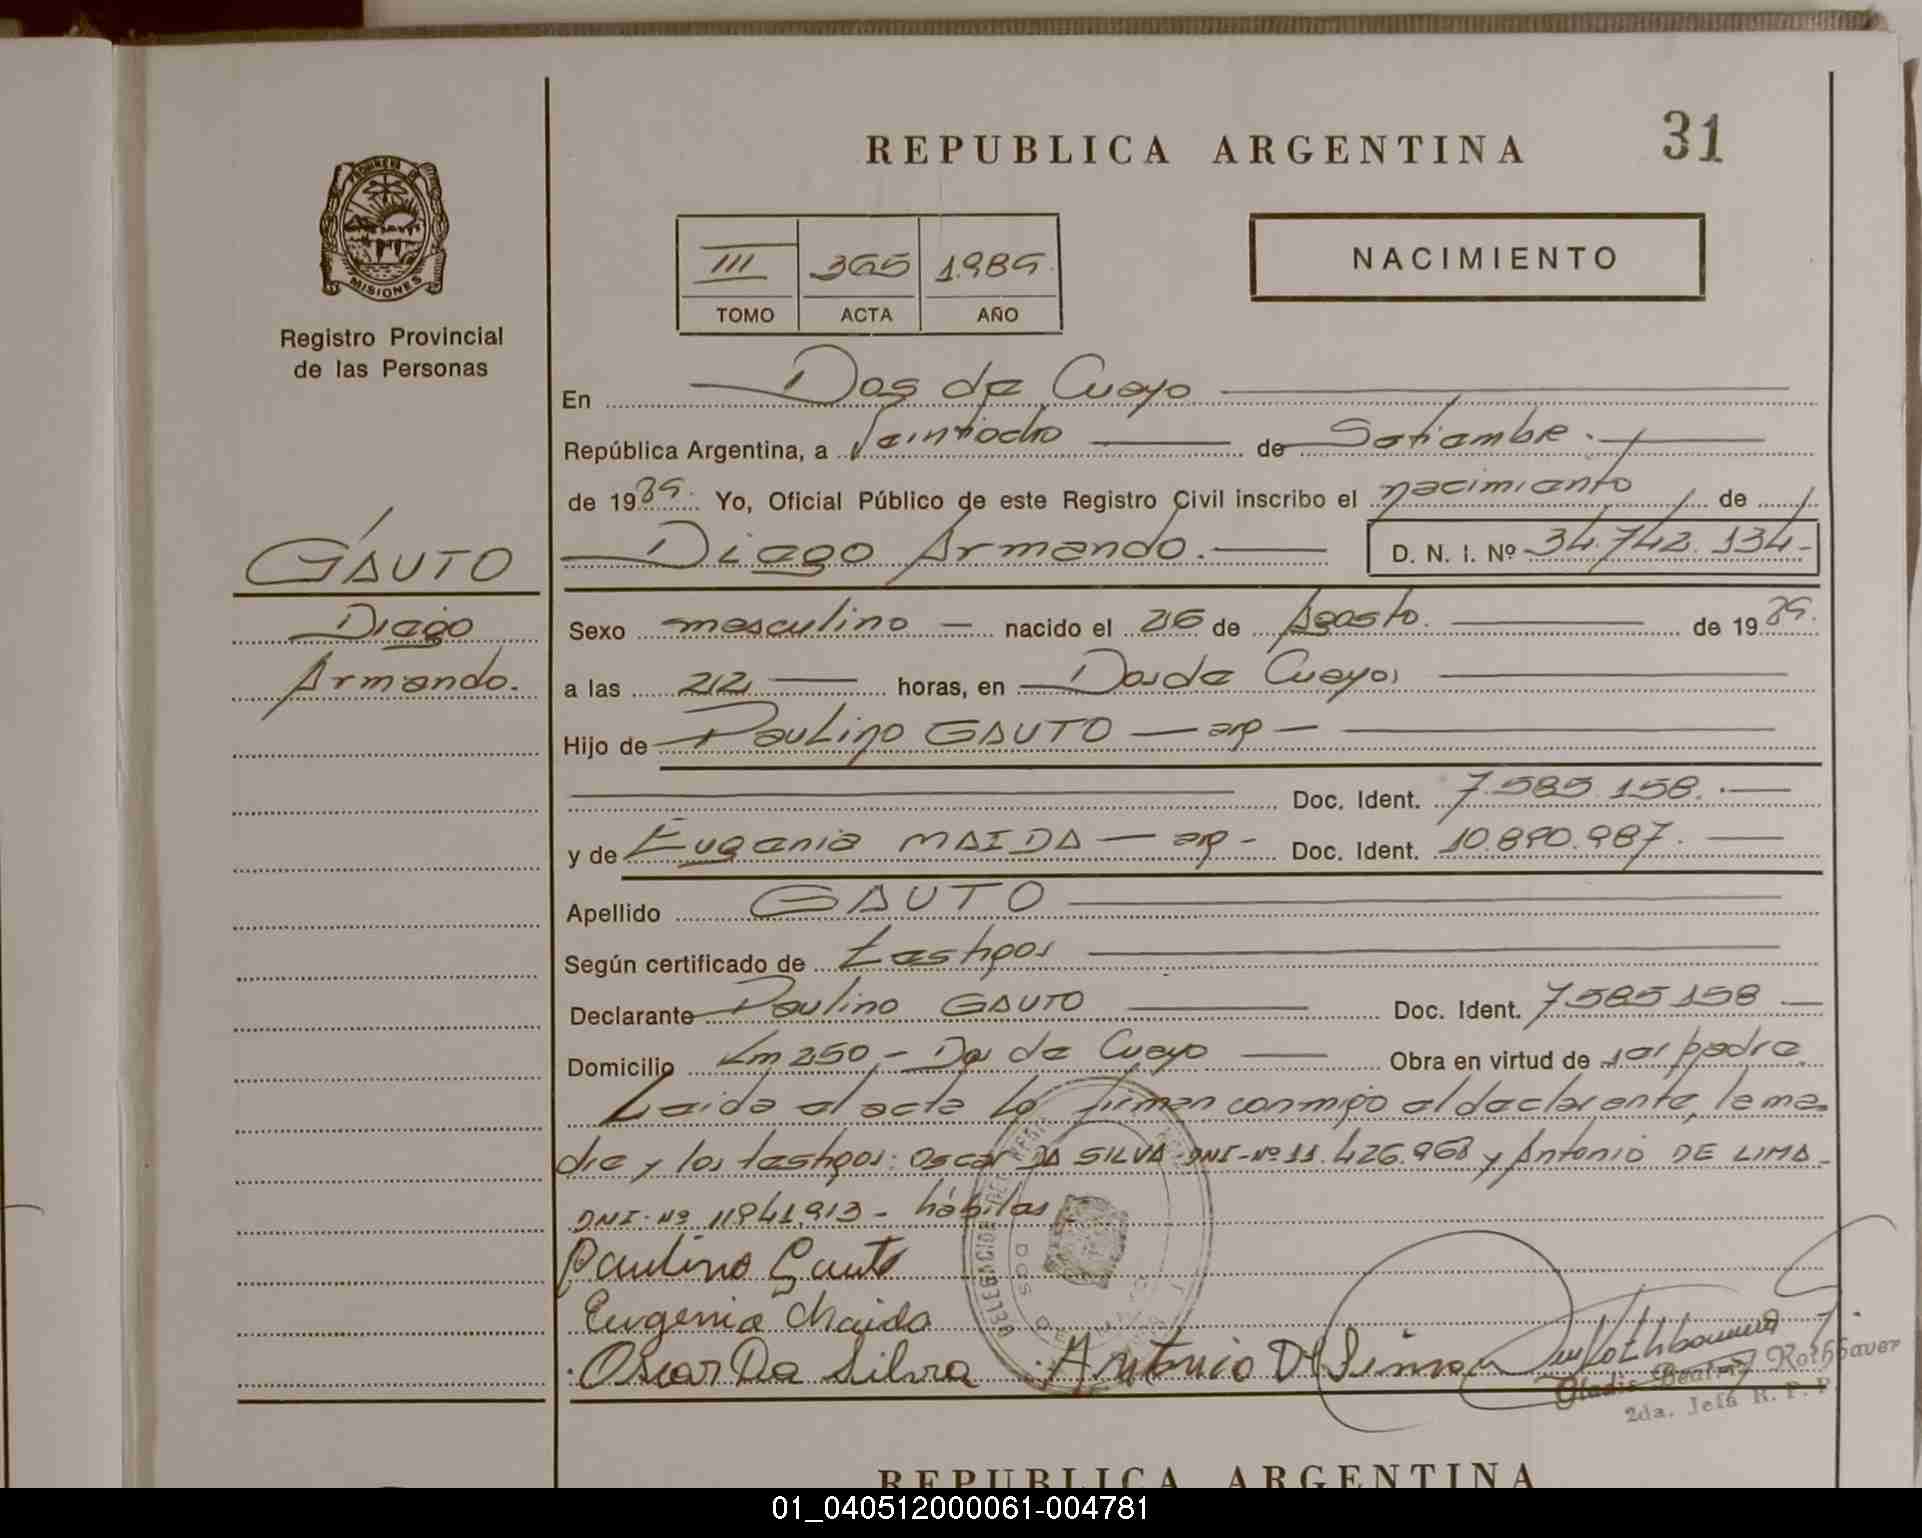 REPUBLICA ARGENTINA
31
PROVINCIA DE
MISIONES
Registro Provincial
de las Personas
III 365 1.989.
TOMO ACTA AÑO
NACIMIENTO
En Dos de Mayo
República Argentina, a Veintiocho de Setiembre.
de 1989. Yo, Oficial Público de este Registro Civil inscribo el nacimiento de
GAUTO
Diego Armando. D. N. I. Nº 34.742.134-
Diego
Sexo masculino nacido el 26 de Agosto. de 1989.
Armando.
a las 22 horas, en Dos de Mayo,
Hijo de Paulino GAUTO - arg -
Doc. Ident. 7.585.158.
y de Eugenia MAIDA - arg - Doc. Ident. 10.890.987.
Apellido GAUTO
Según certificado de testigos
Declarante Paulino GAUTO Doc. Ident. 7.585.158
Domicilio Km 250 - Dos de Mayo Obra en virtud de ser padre
Leida el acta la firman conmigo el declarante, la ma-
dre y los testigos: Oscar DA SILVA-DNI-Nº 11.426.968 y Antonio DE LIMA-
DNI-Nº 11.941.913 - hábiles
Paulino Gauto
Eugenia Maida
Oscar Da Silva Antonio De Lima
Gladis Beatriz Rothbauer
2da. Jefa R. P. P.
REPUBLICA ARGENTINA
01_040512000061-004781